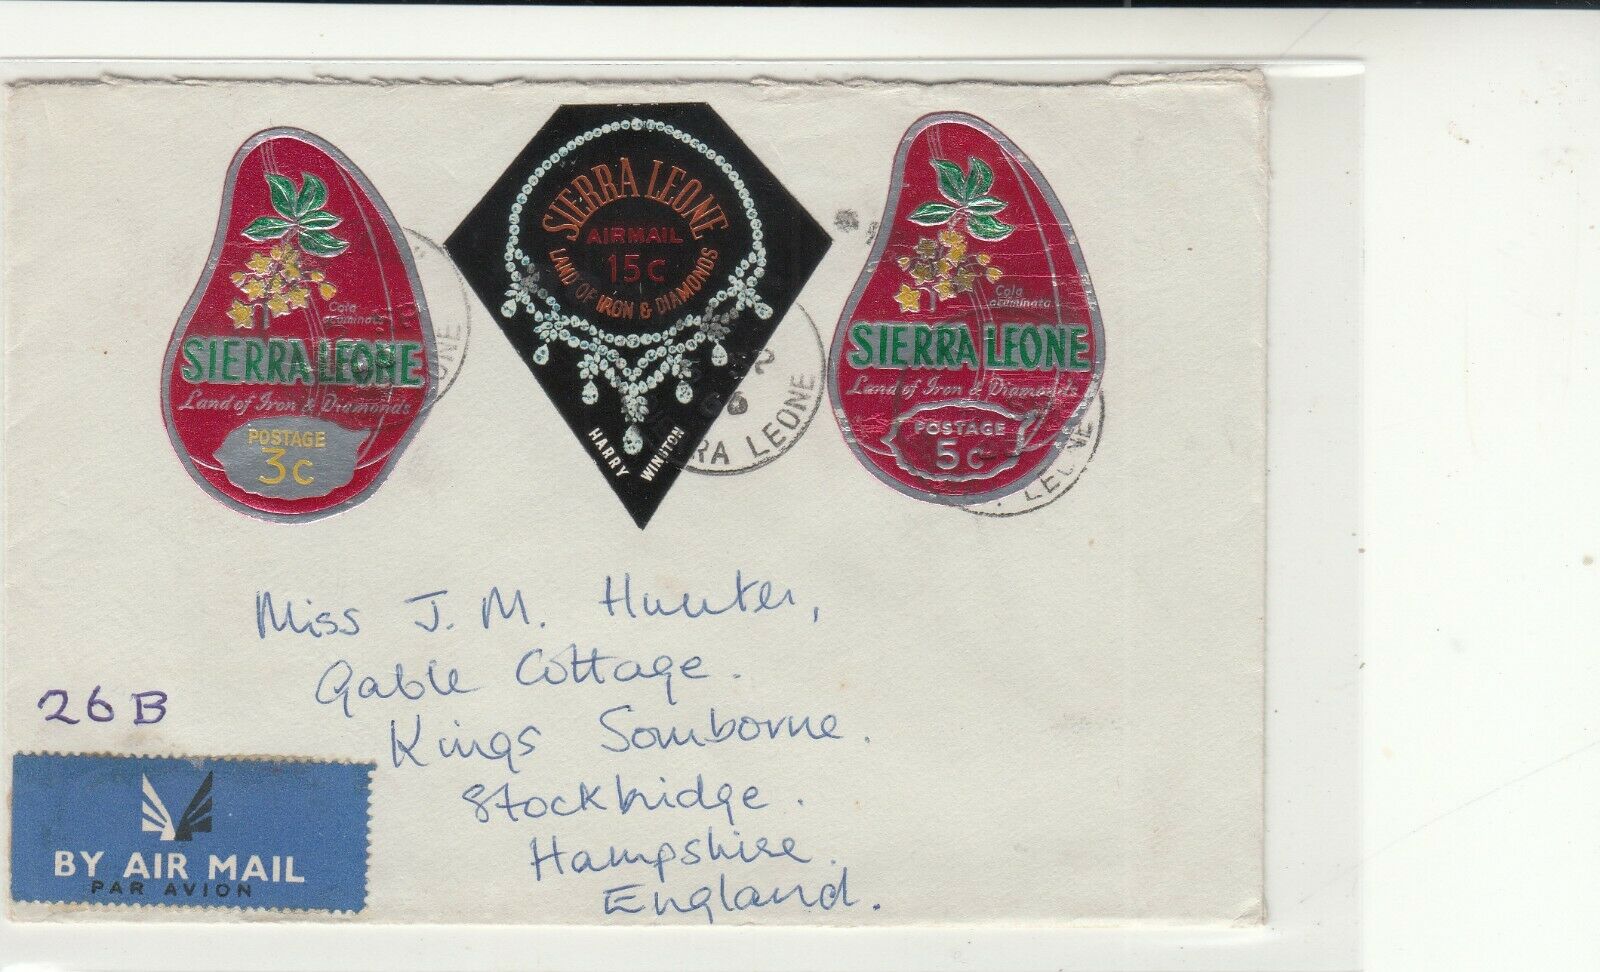 Cola
acuminata
SIERRA LEONE
Land of Iron & Diamonds
POSTAGE
3c
SIERRA LEONE
AIRMAIL
15c
LAND OF IRON & DIAMONDS
HARRY WINSTON
RA LEONE
Cola
acuminata
SIERRA LEONE
Land of Iron & Diamonds
POSTAGE
5c
LEONE
Miss J. M. Hunter,
Gable Cottage.
Kings Somborne.
Stockbridge.
Hampshire.
England.
26B
BY AIR MAIL
PAR AVION